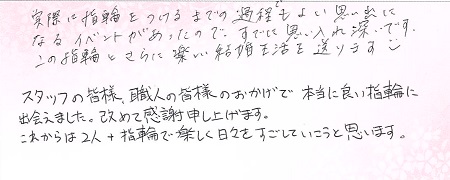 実際に指輪をつけるまでの過程もよい思い出に
なるイベントがあったので、すでに思い入れ深いです。
この指輪とさらに楽しい結婚生活を送ります
スタッフの皆様、職人の皆様のおかげで本当に良い指輪に
出会えました。改めて感謝申し上げます。
これからは2人+指輪で楽しく日々をすごしていこうと思います。